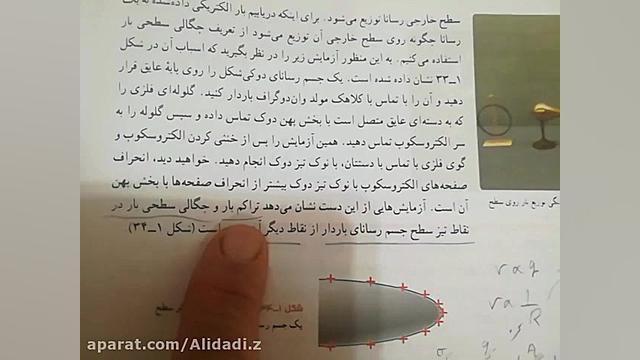 سطح خارجی رسانا توزیع می‌شود. برای اینکه دریابیم بار الکتریکی داده‌شده به یک
رسانا چگونه روی سطح خارجی آن توزیع می‌شود از تعریف چگالی سطحی بار
استفاده می‌کنیم. به این منظور آزمایش زیر را در نظر بگیرید که اسباب آن در شکل
۱ـ۳۳ نشان داده شده است. یک جسم رسانای دوکی‌شکل را روی پایهٔ عایق قرار
دهید و آن را با تماس با کلاهک مولد وان‌دوگراف باردار کنید. گلوله‌ای فلزی را
که به دسته‌ای عایق متصل است با بخش پهن دوک تماس داده و سپس گلوله را به
سر الکتروسکوپ تماس دهید. همین آزمایش را پس از خنثی کردن الکتروسکوپ و
گوی فلزی با تماس با دستتان، با نوک تیز دوک انجام دهید. خواهید دید، انحراف
صفحه‌های الکتروسکوپ با نوک تیز دوک بیشتر از انحراف صفحه‌ها با بخش پهن
آن است. آزمایش‌هایی از این دست نشان می‌دهد تراکم بار و چگالی سطحی بار در
نقاط تیز سطح جسم رسانای باردار از نقاط دیگر است (شکل ۱ـ۳۴)
توزیع بار روی سطح
شکل ۱ـ
سطح
یک جسم
r α q
r α 1/R
aparat.com/Alidadi.z